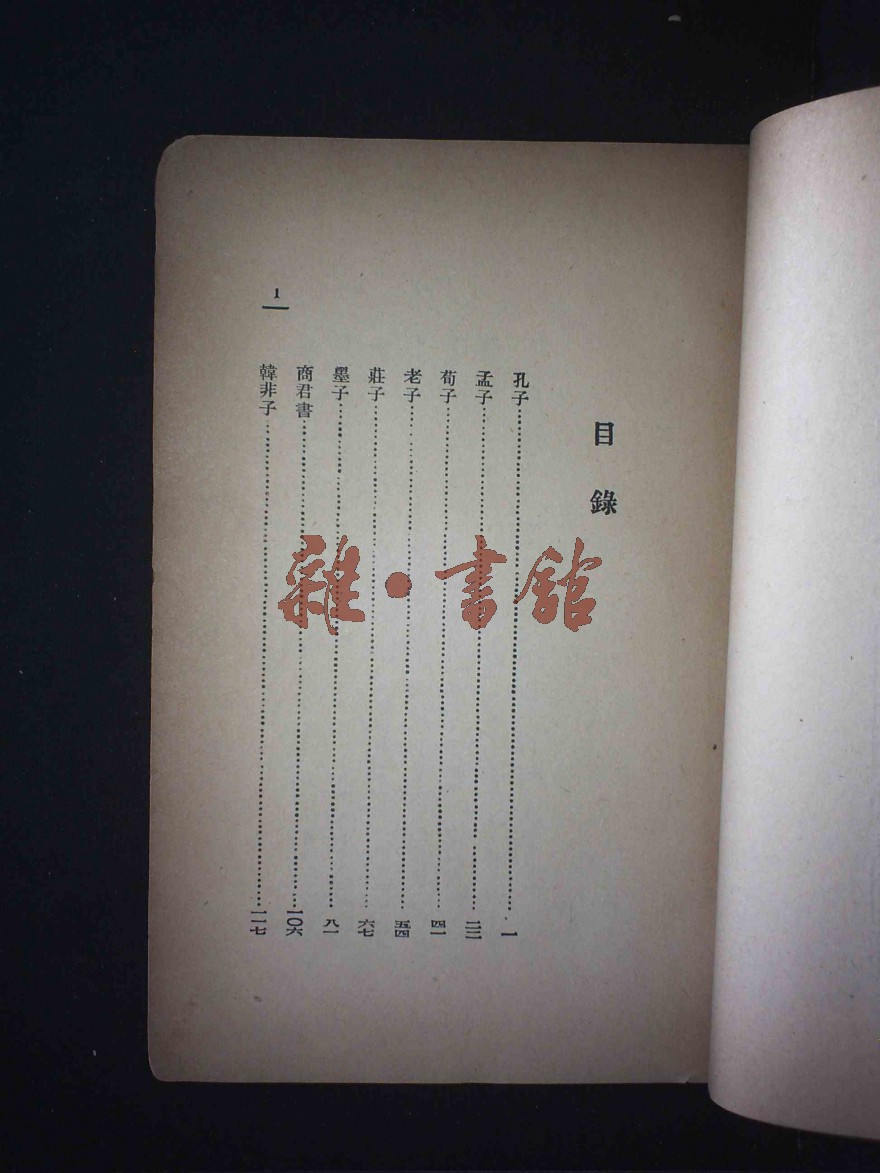 目錄
孔子……一
孟子……
荀子……四一
老子……五四
莊子……六七
墨子……八一
商君書……一〇六
韓非子……一一七
1
雜·書館